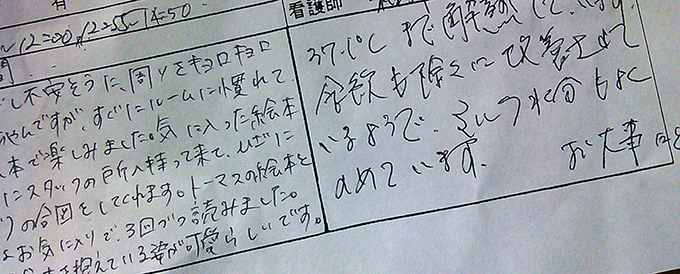 有
看護師
~12=00, 12=55~14=50
し不安そうに、周りをキョロキョロ
ですが、すぐにルームに慣れて、
本で楽しみました。気に入った絵本
にスタッフの所へ持って来て、ひざに
りの合図をしてくれます。トーマスの絵本と
お気に入りで、3回づつ読みました。
を抱えている姿が可愛らしいです。
37.1℃まで解熱しています。
食欲も除々に改善されて
いるようで、水分もよく
のめています。
お大事に